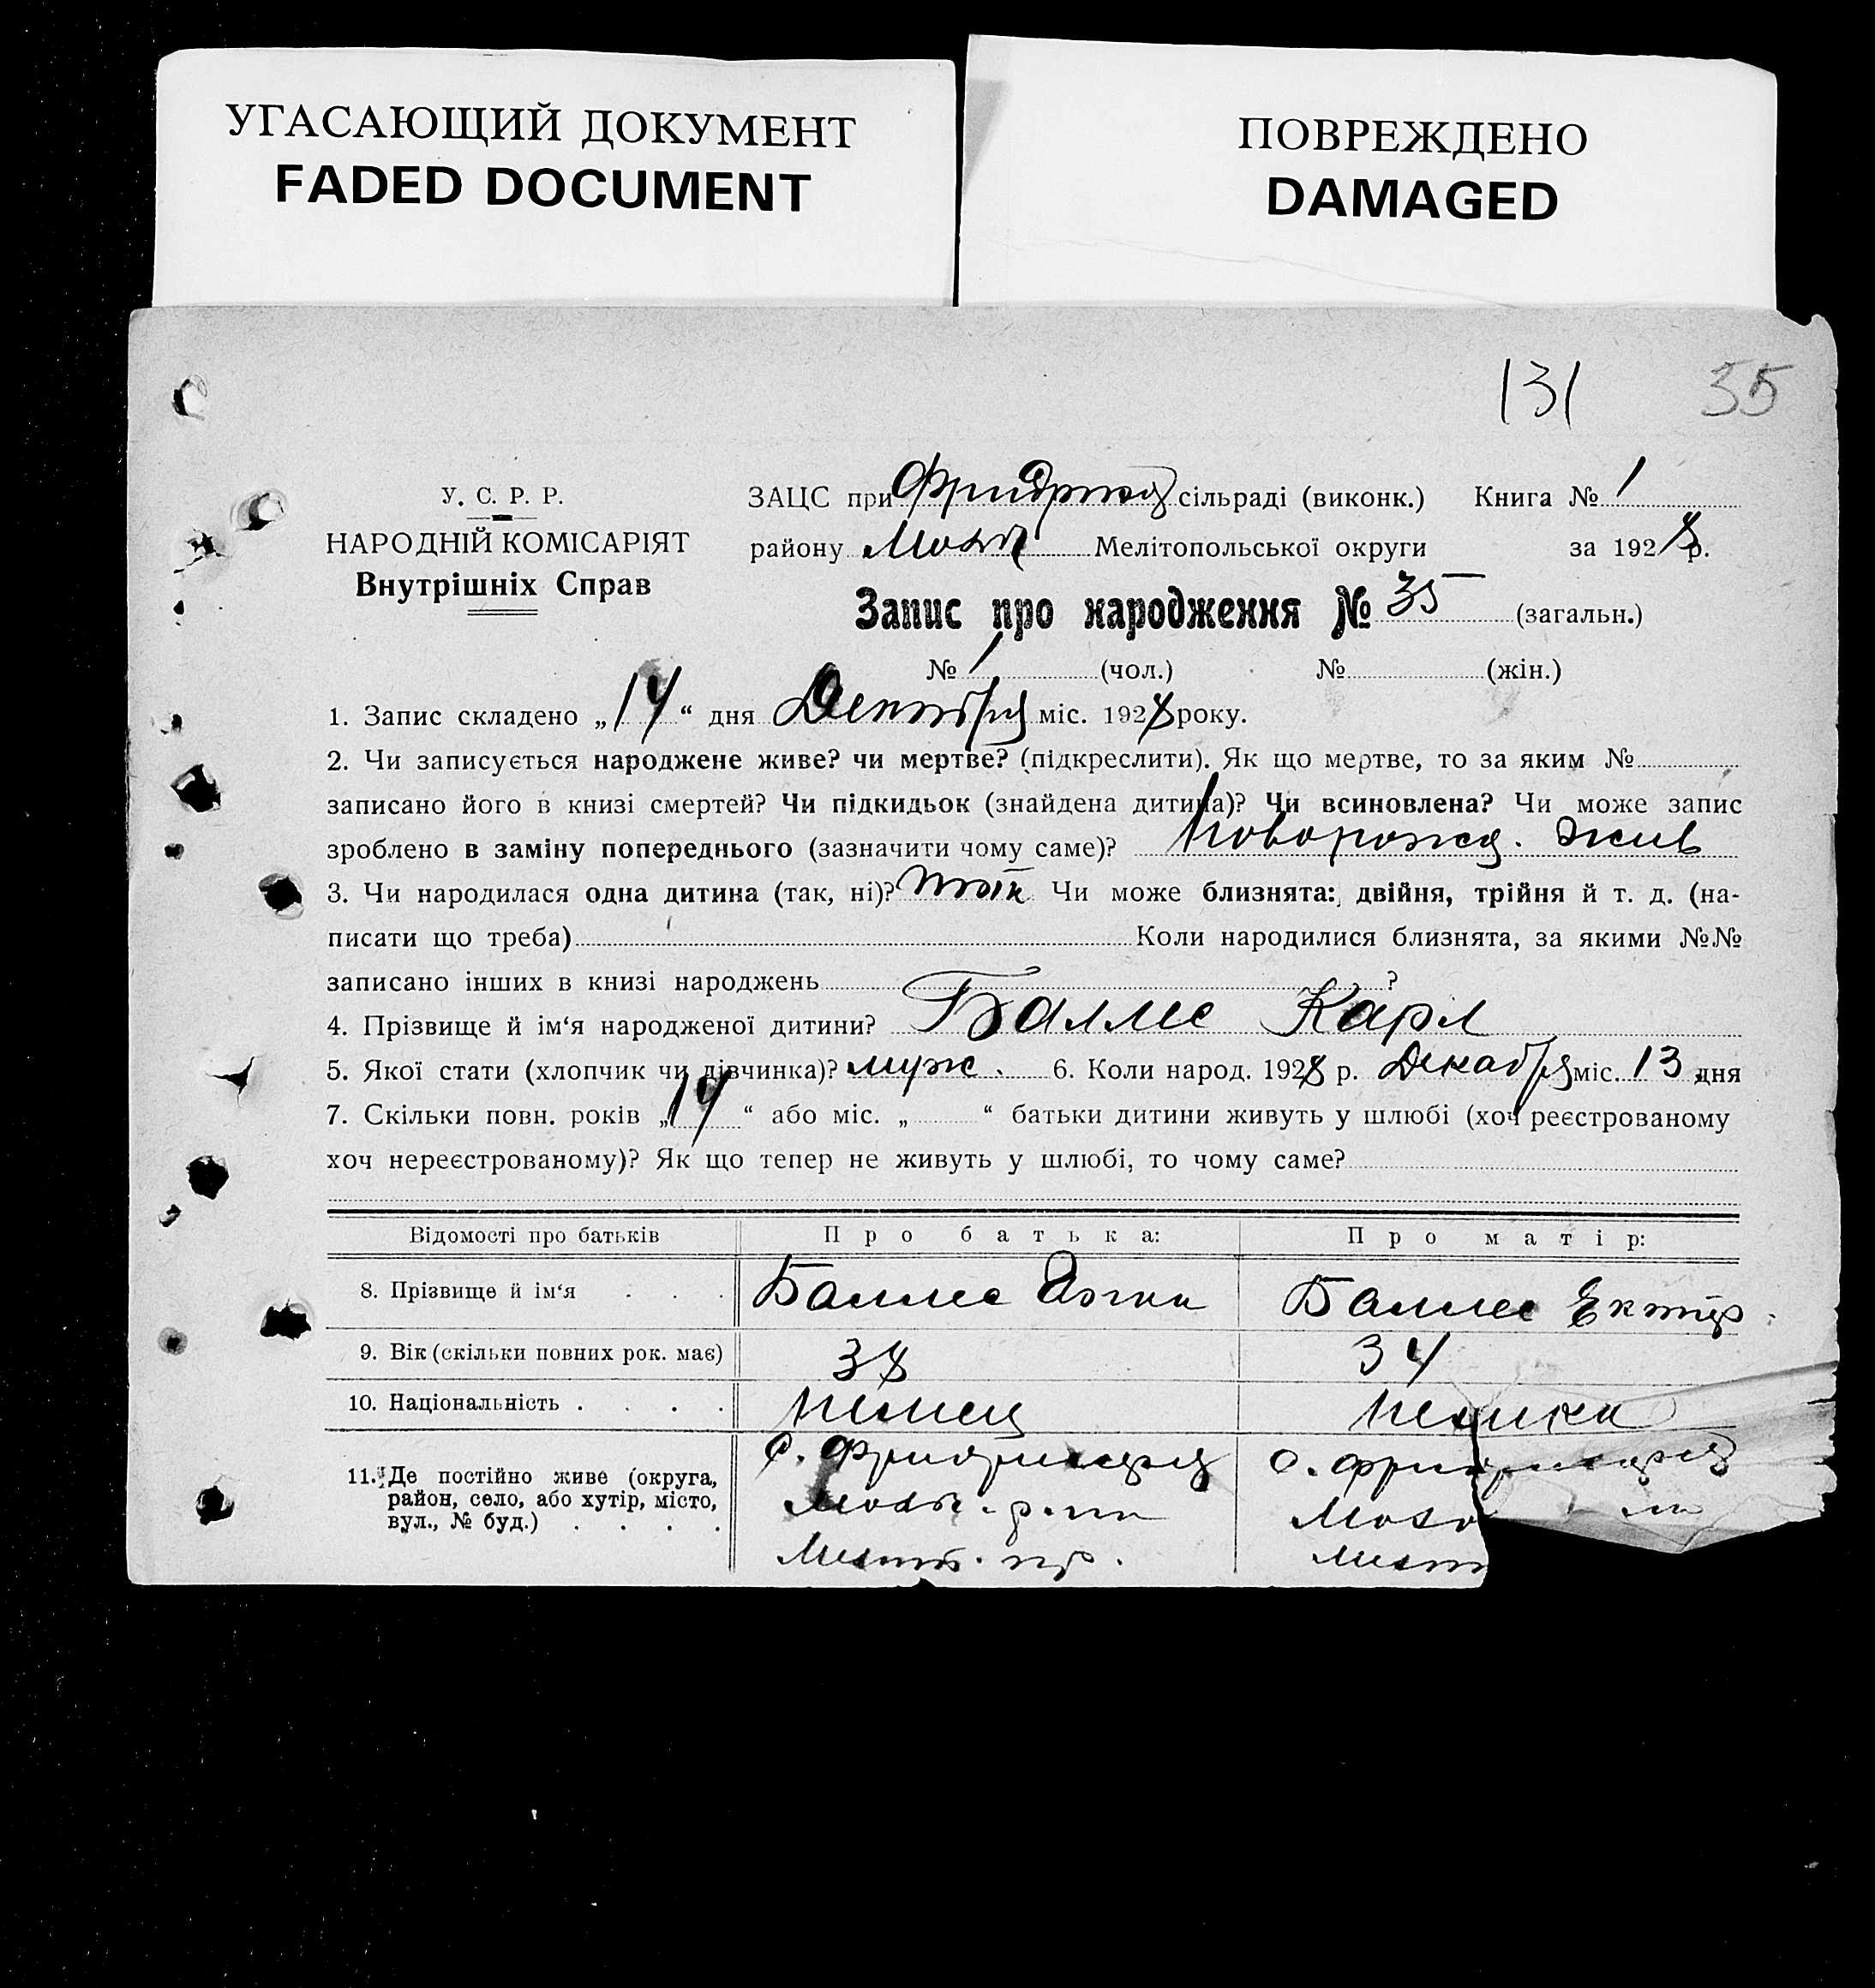 УГАСАЮЩИЙ ДОКУМЕНТ
FADED DOCUMENT
ПОВРЕЖДЕНО
DAMAGED
131 35
У. С. Р. Р.
НАРОДНІЙ КОМІСАРІЯТ
Внутрішніх Справ
ЗАЦС при сільраді (виконк.) Книга № 1
району Мелітопольської округи за 1928 р.
Запис про народження № 35 (загальн.)
№ 1 (чол.) № (жін.)
1. Запис складено „14“ дня Декабря міс. 1928 року.
2. Чи записується народжене живе? чи мертве? (підкреслити). Як що мертве, то за яким №
записано його в книзі смертей? Чи підкидьок (знайдена дитина)? Чи всиновлена? Чи може запис
зроблено в заміну попереднього (зазначити чому саме)? Коворожд. жив
3. Чи народилася одна дитина (так, ні)? так Чи може близнята: двійня, трійня й т. д. (на-
писати що треба) Коли народилися близнята, за якими №№
записано інших в книзі народжень ?
4. Прізвище й ім‘я народженої дитини? Баллес Карл
5. Якої стати (хлопчик чи дівчинка)? муж. 6. Коли народ. 1928 р. Декабря міс. 13 дня
7. Скільки повн. років „14“ або міс. „ “ батьки дитини живуть у шлюбі (хоч реєстрованому
хоч нереєстрованому)? Як що тепер не живуть у шлюбі, то чому саме?
Відомості про батьків Про батька: Про матір:
8. Прізвище й ім‘я . . . Баллес Баллес
9. Вік (скільки повних рок. має) 38 34
10. Національність . . . . немец немка
11. Де постійно живе (округа,
район, село, або хутір, місто,
вул., № буд.) . . . .